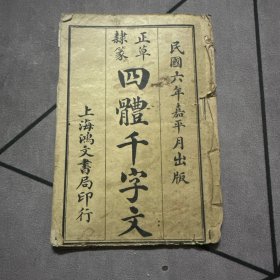 民國六年嘉平月出版
正草
隸篆
四體千字文
上海鴻文書局印行